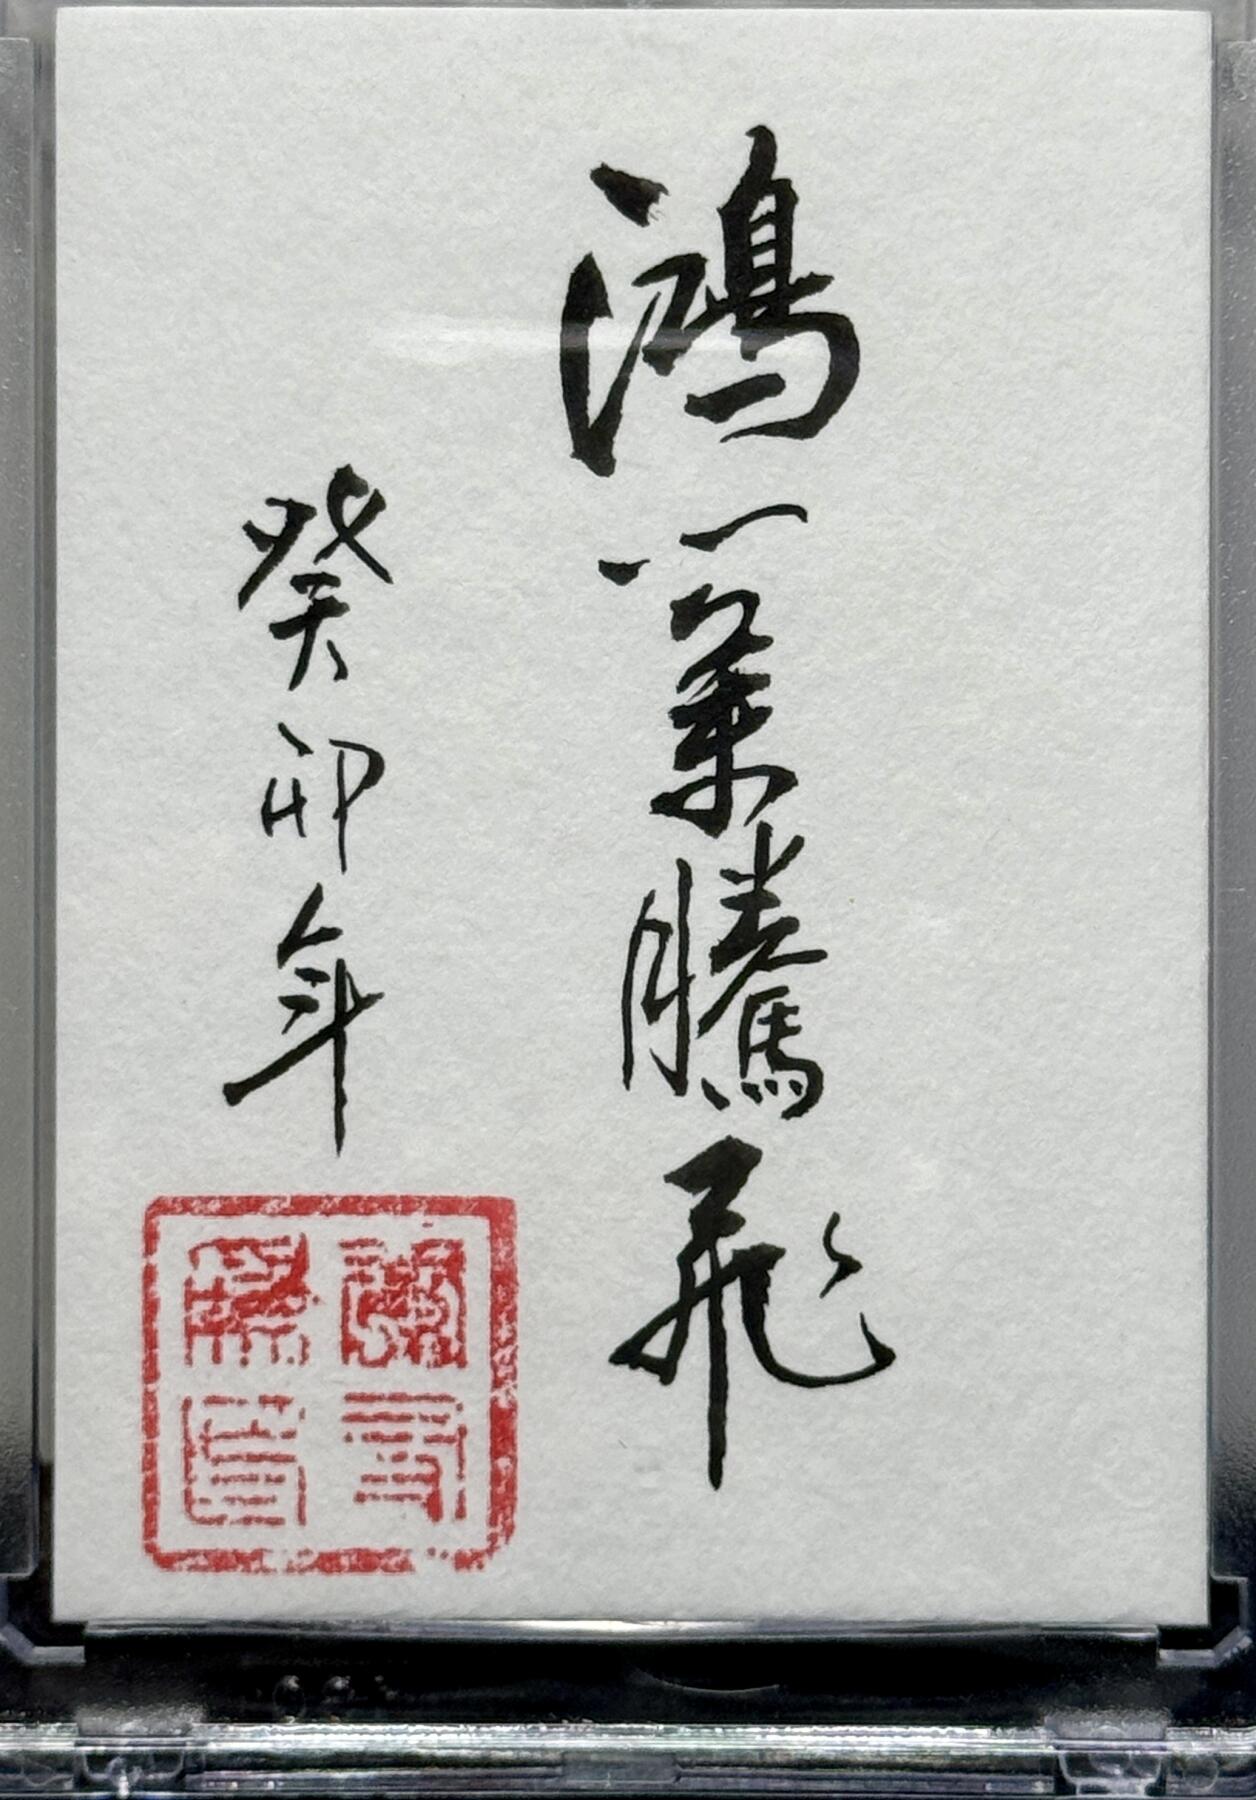 鴻業騰飛
癸卯年